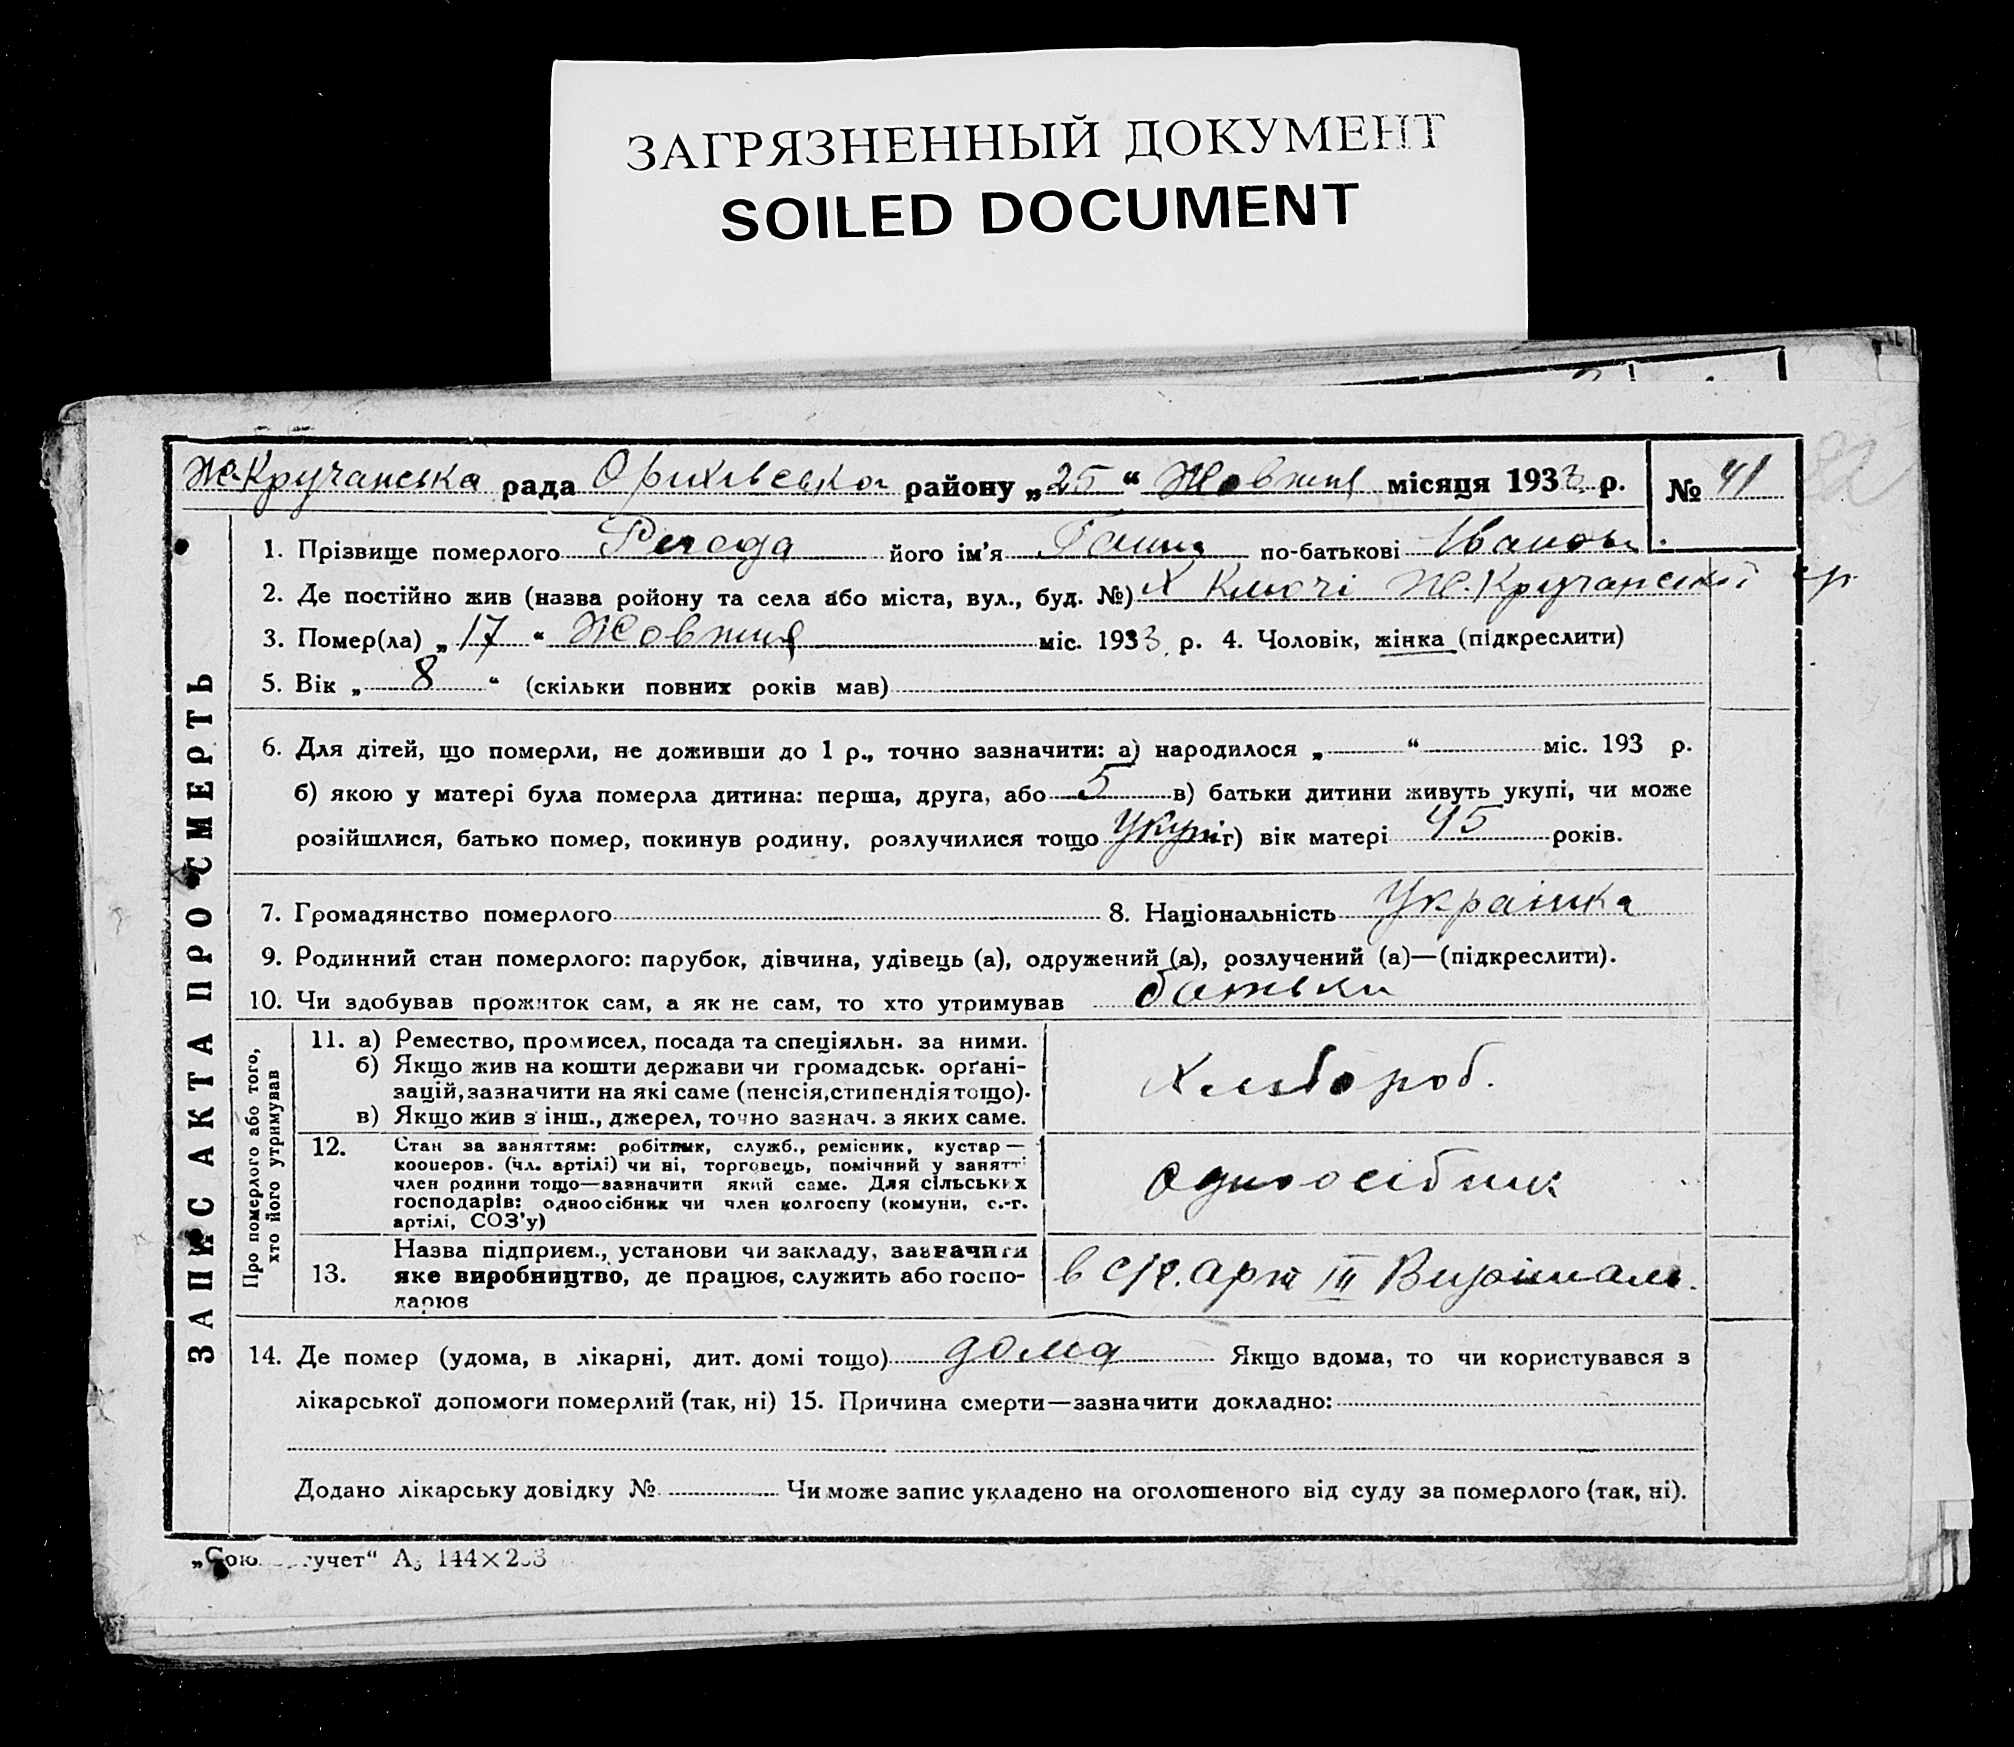 ЗАГРЯЗНЕННЫЙ ДОКУМЕНТ
SOILED DOCUMENT
Ж-Кручанська рада Оріхівсько района району „25“ Жовтня місяця 1933 р. № 41
1. Прізвище померлого його ім’я Ганна по-батькові Іванов.
2. Де постійно жив (назва ройону та села або міста, вул., буд. №) Х Ключі Ж.Кручанської с/р
3. Помер(ла) „17“ Жовтня міс. 1933 р. 4. Чоловік, жінка (підкреслити)
5. Вік „8“ (скільки повних років мав)
6. Для дітей, що померли, не доживши до 1 р., точно зазначити: а) народилося „ “ міс. 193 р.
б) якою у матері була померла дитина: перша, друга, або 5 в) батьки дитини живуть укупі, чи може
розійшлися, батько помер, покинув родину, розлучилися тощо Укупі г) вік матері 45 років.
7. Громадянство померлого 8. Національність Українка
9. Родинний стан померлого: парубок, дівчина, удівець (а), одружений (а), розлучений (а)—(підкреслити).
10. Чи здобував прожиток сам, а як не сам, то хто утримував батьки
Про померлого або того,
хто його утримував
11. а) Ремество, промисел, посада та спеціяльн. за ними.
б) Якщо жив на кошти держави чи громадськ. орґані-
зацій, зазначити на які саме (пенсія, стипендія тощо).
в) Якщо жив з інш., джерел, точно зазнач. з яких саме.
Хлібороб.
12. Стан за заняттям: робітник, служб., ремісник, кустар —
кооперов. (чл. артілі) чи ні, торговець, помічний у занятті
член родини тощо—зазначити який саме. Для сільських
господарів: одноосібник чи член колгоспу (комуни, с.-г.
артілі, СОЗ’у)
Одноосібник
13. Назва підприєм., установи чи закладу, зазначити
яке виробництво, де працює, служить або госпо-
дарює
в с/г. арт ІІІ Вирішаль.
14. Де помер (удома, в лікарні, дит. домі тощо) дома Якщо вдома, то чи користувався з
лікарської допомоги померлий (так, ні) 15. Причина смерти—зазначити докладно:
Додано лікарську довідку № Чи може запис укладено на оголошеного від суду за померлого (так, ні).
ЗАПИС АКТА ПРО СМЕРТЬ
144×203
82